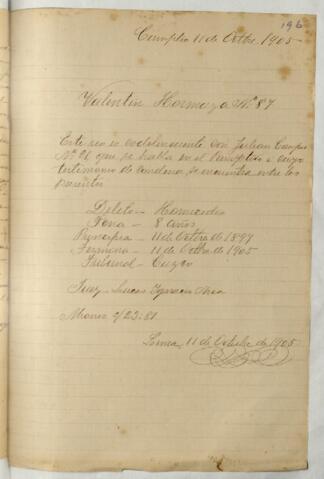 196
Cumplió 11 de Octre. 1905
Valentín Hormaza Nº 87
Este reo es codelincuente con Julian Campos
Nº 26 que se halla en el cumplido a cuyo
testimonio de condena se encuentra entre los
pasantes
Delito - Homicidio
Pena - 8 años
Principia - 11 de Octre de 1897
Termina - 11 de Octre de 1905
Tribunal - Cuzco
Juez - Lucas Ignacio
23:81
Lima, 11 de Octubre de 1905